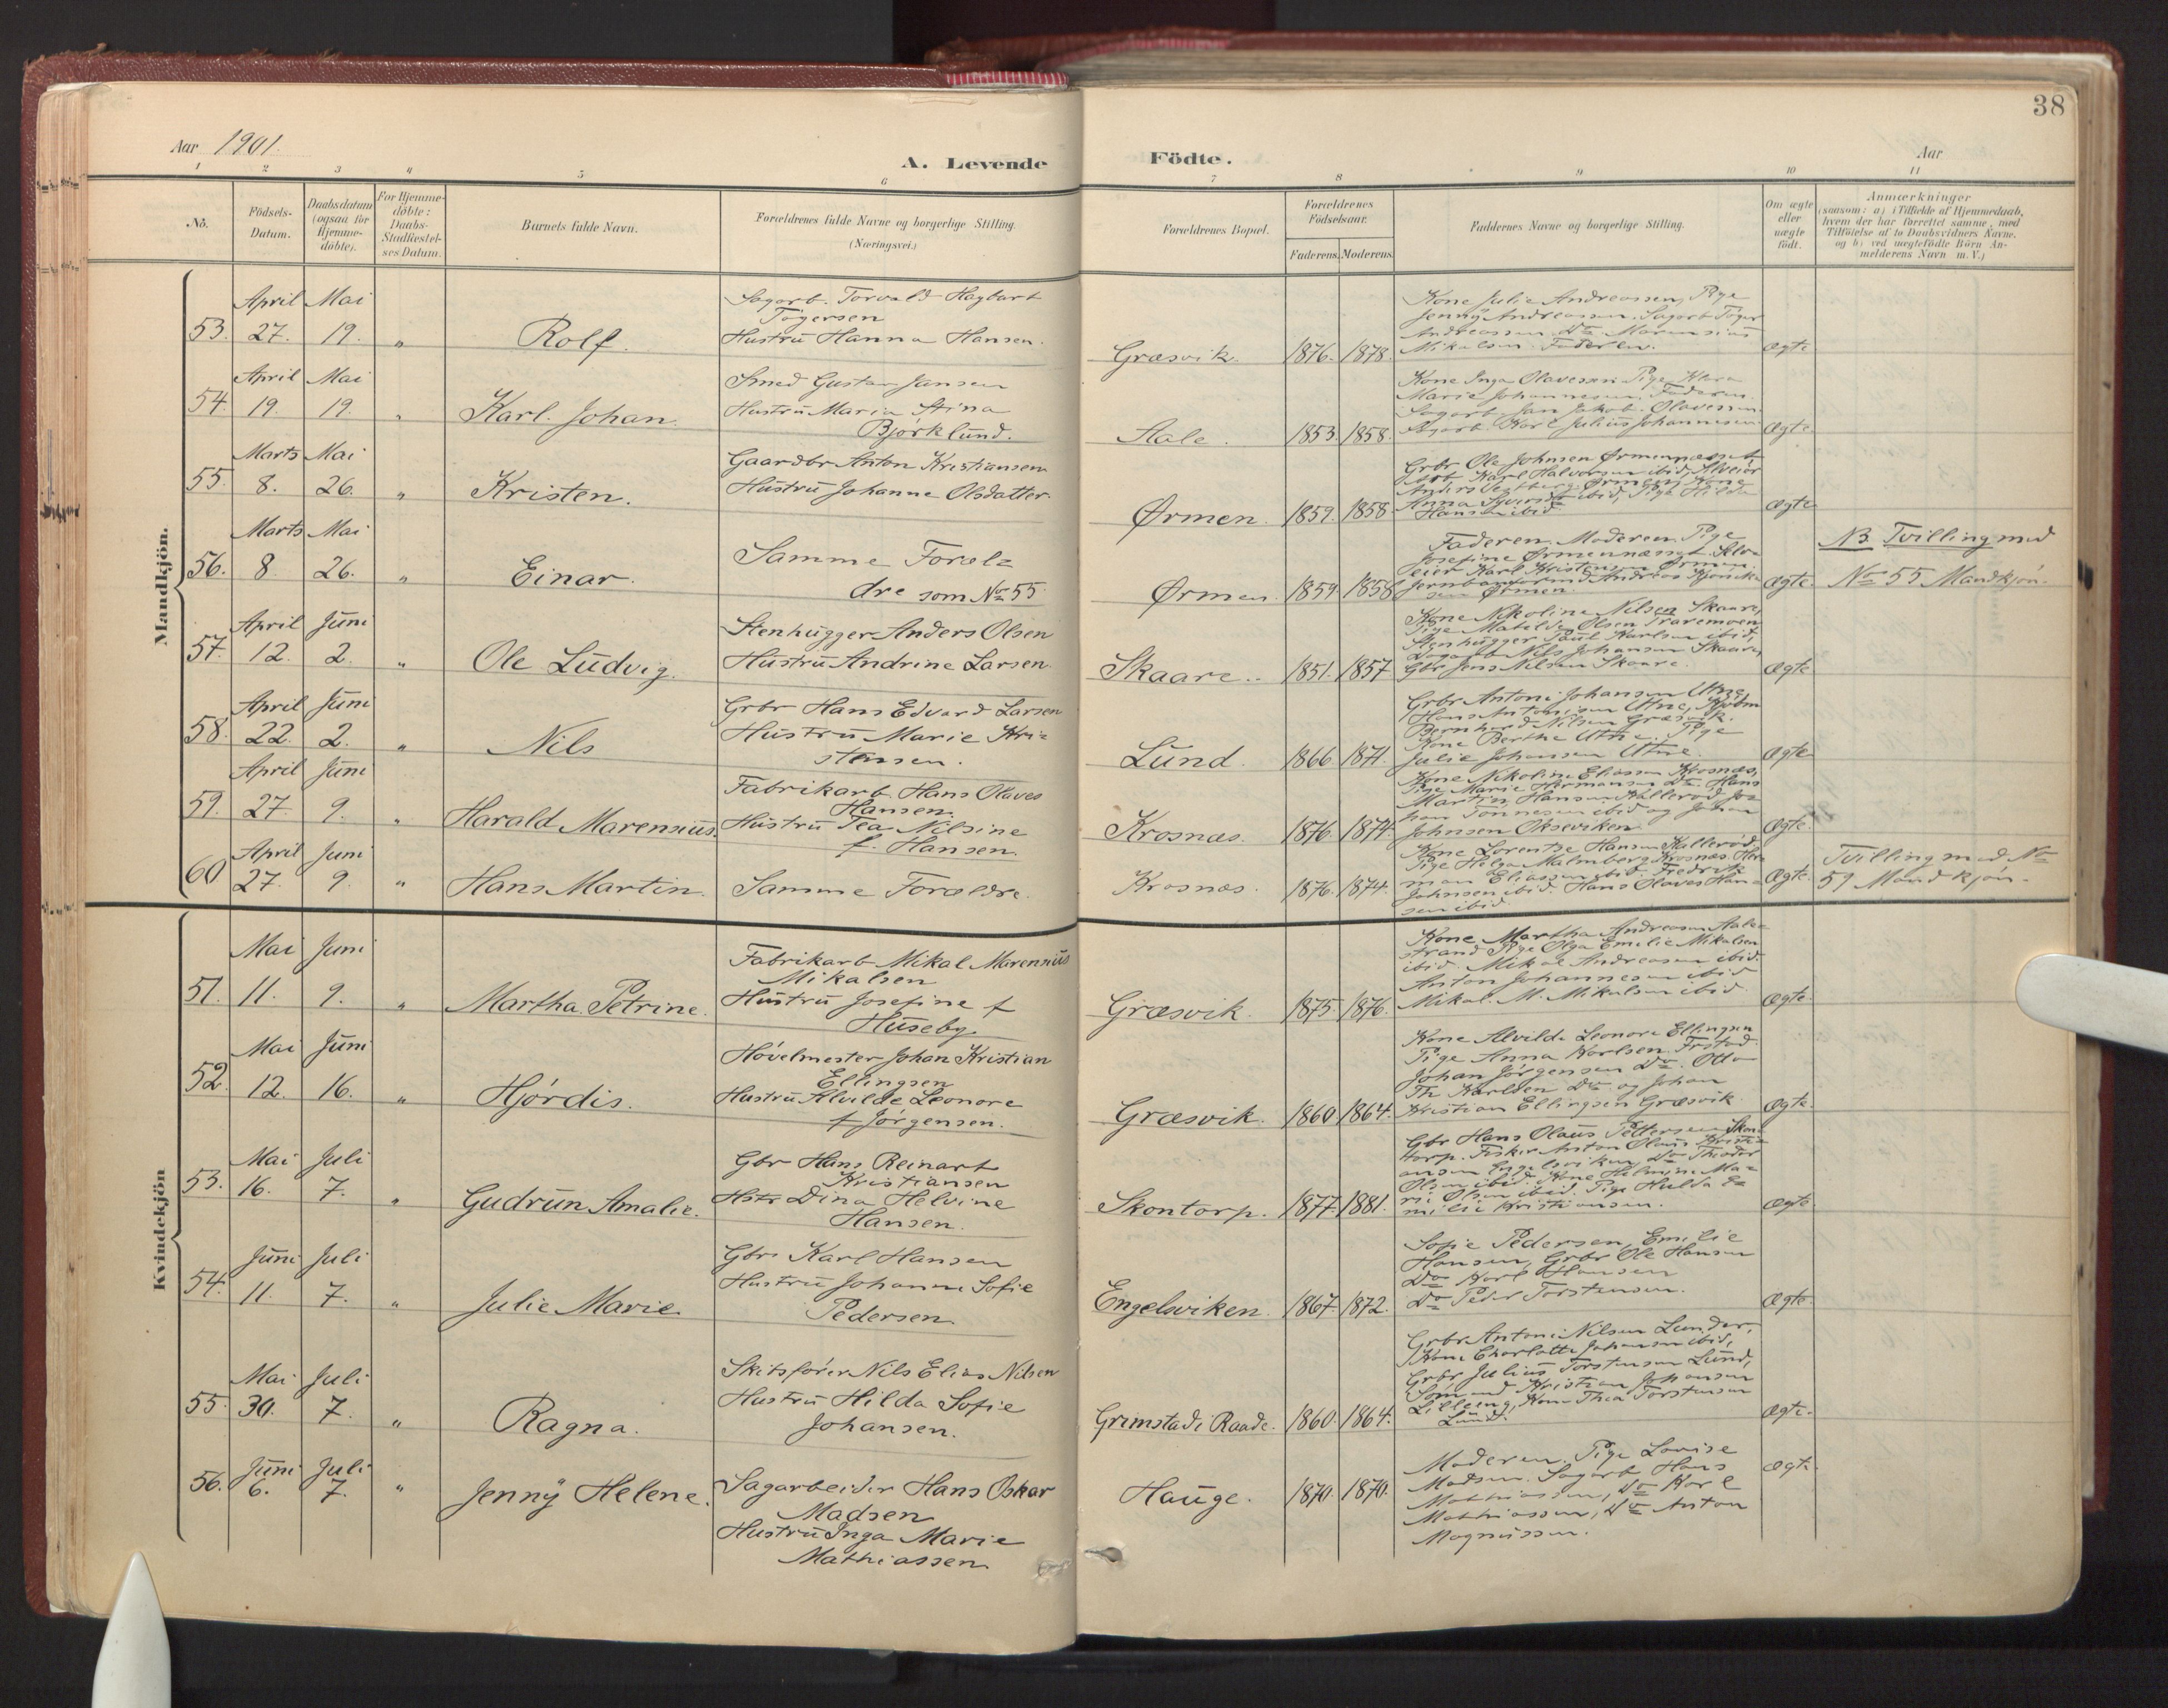 38
Aar 1901.
A. Levende Födte.
Aar
1 2 3 4 5 6 7 8 9 10 11
No.
Födsels-Datum.
Daabsdatum (ogsaa för Hjemme-döbte).
For Hjemme-döbte: Daabs-Stadfæstel-ses Datum.
Barnets fulde Navn.
Forældrenes fulde Navne og borgerlige Stilling. (Næringsvei.)
Forældrenes Bopæl.
Forældrenes Födselsaar.
Faderens. Moderens.
Faddernes Navne og borgerlige Stilling.
Om ægte eller uægte födt.
Anmærkninger
(saasom: a) i Tilfælde af Hjemmedaab,
hvem der har forrettet samme, med
Tilföielse af to Daabsvidners Navne,
og b) ved uægtefödte Börn An-
melderens Navn m. V.)
Mandkjön.
53. April 27. Mai 19. " Rolf.
Sagarb. Torvald Hagbart
Tögersen
Hustru Hanna Hansen.
Græsvik. 1876. 1878.
Kone Julie Andreassen, Pige
Jenny Andreassen. Sagarb Töger
Andreassen. Do Marensius
Mikalsen. Faderen.
Ægte
54. April 19. Mai 19. " Karl Johan.
Smed Gustav Jansen
Hustru Maria Stina
Björklund.
Aale. 1853. 1858.
Kone Inga Olavesen Pige Klara
Marie Johannesen, Faderen.
Sagarb. Jan Jakob Olavesen
Sagarb. Karl Julius Johannesen
Ægte.
55. Marts 8. Mai 26. " Kristen.
Gaardbr Anton Kristiansen
Hustru Johanne Olsdatter.
Ørmen. 1859. 1858.
Grbr Ole Johnsen Ørmennæsset
Arb Karl Halvorsen ibid, Selveier
Anders Vestberg Ørmen, Kone
Anna Syversdt ibid, Pige Hilda
Hansen ibid
Ægte
56. Marts 8. Mai 26. " Einar.
Samme Foræl=
dre som No 55
Ørmen. 1859. 1858
Faderen. Moderen. Pige
Josefine Ørmennæsset. Selv=
eier Karl Kristensen Ørmen.
Ørmen.
Ægte.
NB. Tvilling med
No 55 Mandkjön.
57. April 12. Juni 2. " Ole Ludvig.
Stenhugger Anders Olsen
Hustru Andrine Larsen.
Skaare.. 1851. 1857.
Kone Nikoline Nilsen Skaare,
Pige Matilde Olsen Traremoen
Stenhugger Paul Karlsen ibid,
Dagarb Nils Johansen Skaare,
Gbr Jens Nilsen Skaare.
Ægte
58. April 22. Juni 2. " Nils
Grbr Hans Edvard Larsen
Hustru Marie Kri=
stensen.
Lund. 1866. 1871.
Grbr Antoni Johansen Utne,
Hans Antonisen Utne,
Bernhard Nilsen Græsvik.
Kone Berthe Utne. Pige
Julie Johansen Utne.
Ægte
59. April 27. Juni 9. " Harald Marensius.
Fabrikarb. Hans Olaves
Hansen.
Hustru Tea Nilsine
f. Hansen.
Krosnæs. 1876. 1874.
Kone Nikoline Eliassen Krosnæs,
Pige Marie Hermansen Do. Hans
Martin Hansen Kallerød, Jo=
han Tönnesen ibid og Johan
Johnsen Okseviken.
Ægte.
60 April 27. Juni 9. " Hans Martin.
Samme Forældre.
Krosnæs. 1876. 1874.
Kone Lorentse Hansen Kallerød.
Pige Helga Malmberg Krosnæs. Her=
man Eliassen ibid. Fredrik
Johnsen ibid. Hans Olaves Han=
sen ibid
Ægte.
Tvilling med No
59 Mandkjön.
Kvindekjön
51. Mai 11. Juni 9. " Martha Petrine.
Fabrikarb Mikal Marensius
Mikalsen
Hustru Josefine f
Huseby.
Græsvik. 1875. 1876.
Kone Martha Andreasen Aale=
strand Pige Olga Emilie Mikalsen
ibid. Mikal Andreasen ibid.
Anton Johannesen ibid
Mikal. M. Mikalsen ibid
Ægte.
52. Mai 12. Juni 16. " Hjördis.
Hövelmester Johan Kristian
Ellingsen
Hustru Alvilde Leonore
f Jörgensen.
Græsvik. 1860 1864.
Kone Alvilde Leonore Ellingsen
Pige Anna Karlsen Frstad.
Johan Jörgensen Do. Otto
Th Karlsen Do og Johan
Kristian Ellingsen Græsvik
Ægte.
53. Mai 16. Juli 7. " Gudrun Amalie.
Gbr Hans Reinart
Kristiansen
Hstr Dina Helvine
Hansen.
Skontorp. 1877. 1881.
Gbr Hans Olaus Pettersen Skon=
torp. Fisker Anton Olaus Kristi=
ansen Engelsviken, Do Theodor
Olsen ibid. Kone Helmine Ma=
rie Olsen ibid. Pige Hulda E=
milie Kristiansen.
Ægte
54. Juni 11. Juli 7. " Julie Marie.
Gbr Karl Hansen
Hustru Johanne Sofie
Pedersen.
Engelsviken. 1867. 1872.
Sofie Pedersen, Emilie
Hansen, Grbr Ole Hansen
Do Karl Hansen
Do Peder Torstensen.
Ægte.
55. Mai 30. Juli 7. " Ragna.
Skibsförer Nils Elias Nilsen
Hustru Hilda Sofie
Johansen.
Grimstad i Raade. 1860. 1864.
Grbr Antoni Nilsen Lunder,
Kone Charlotte Johansen ibid,
Grbr Julius Torstensen Lund,
Sömand Kristian Johansen
Lilleeng, Kone Thea Torstensen
Lund.
Ægte.
56. Juni 6. Juli 7. " Jenny Helene.
Sagarbeider Hans Oskar
Madsen
Hustru Inga Marie
Mathiassen.
Hauge. 1870. 1870.
Moderen. Pige Lovise
Madsen. Sagarb Hans
Mathiassen, Do Karl
Mathiassen, Do Anton
Magnussen.
Ægte.